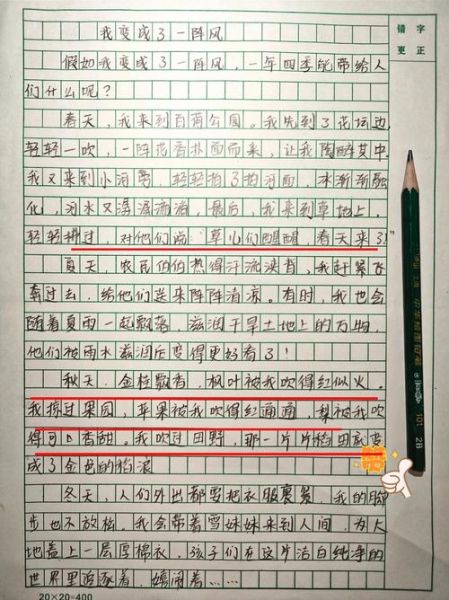 我变成了一阵风
错字
更正
假如我变成了一阵风，一年四季能带给人
们什么呢？
春天，我来到百荷公园。我先到了花坛边，
轻轻一吹，一阵花香扑面而来，让我陶醉其中
我又来到小河旁，轻轻拍了拍河面，冰渐渐融
化，河水又潺潺流淌，最后，我来到草地上，
轻轻拂过，对他们说“草儿们醒醒，春天来了！”
夏天，农民伯伯热得汗流浃背，我赶紧飞
奔过去，给他们送来阵阵清凉。有时，我也会
随着夏雨一起飘落，滋润干旱土地上的万物，
他们被雨水滋润后变得更好看了！
秋天，金桂飘香，枫叶被我吹得红似火。
我掠过果园，苹果被我吹得红通通，梨被我吹
得可口香甜。我吹过田野，那一片片稻田就变
成了金色的稻浪
冬天，人们外出都要把衣服裹紧，我的脚
步也不放松。我会带着雪妹妹来到人间，为大
地盖上一层厚棉衣，孩子们在这片洁白纯净的
世界里追逐着，嬉闹着……
20×20=400
中华牌铅笔
101 2B